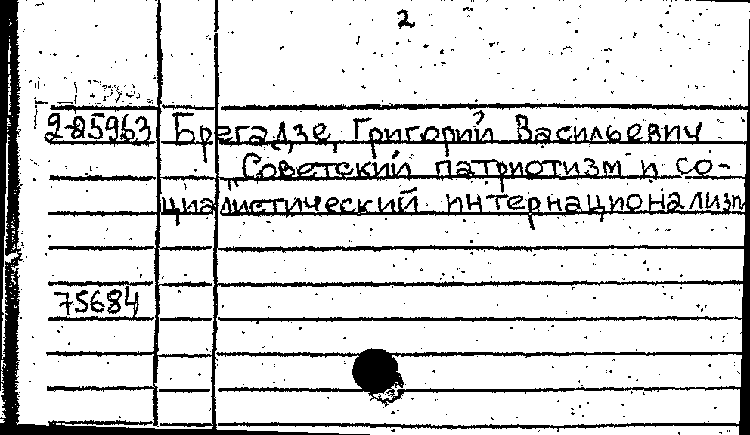 2
2-25963 Брегадзе, Григорий Васильевич
„Советский патриотизм и со-
циалистический интернационализм
75684